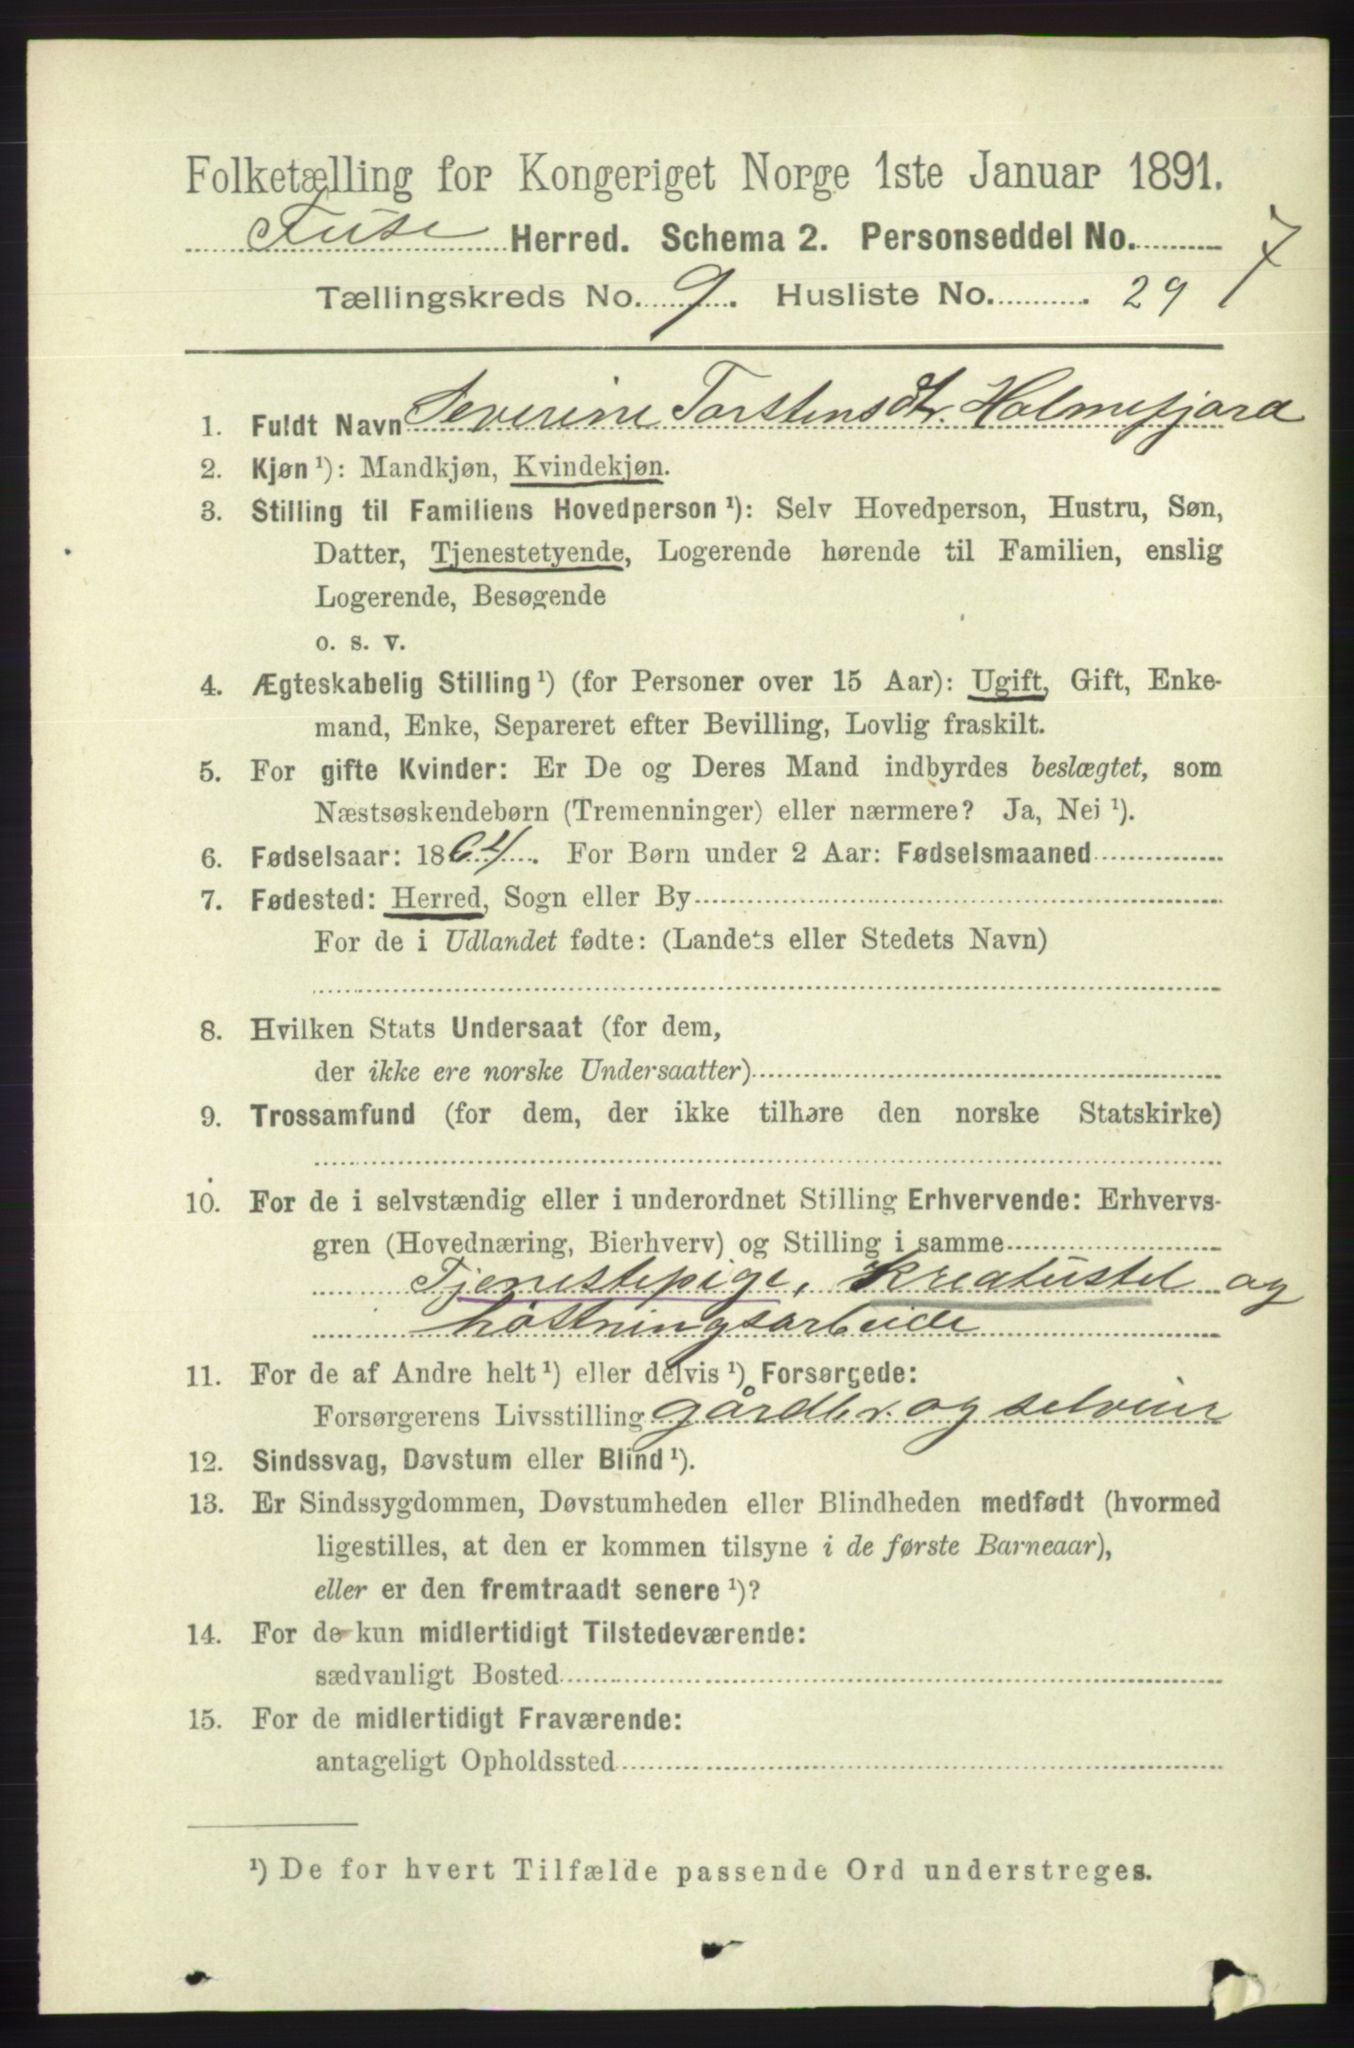 Folketælling for Kongeriget Norge 1ste Januar 1891.
Fuse Herred. Schema 2. Personseddel No. 7
Tællingskreds No. 9. Husliste No. 29
1. Fuldt Navn Severine Torstensdtr. Holmefjord
2. Kjøn ¹): Mandkjøn, Kvindekjøn.
3. Stilling til Familiens Hovedperson ¹): Selv Hovedperson, Hustru, Søn,
Datter, Tjenestetyende, Logerende hørende til Familien, enslig
Logerende, Besøgende
o. s. v.
4. Ægteskabelig Stilling ¹) (for Personer over 15 Aar): Ugift, Gift, Enke-
mand, Enke, Separeret efter Bevilling, Lovlig fraskilt.
5. For gifte Kvinder: Er De og Deres Mand indbyrdes beslægtet, som
Næstsøskendebørn (Tremenninger) eller nærmere? Ja, Nei ¹).
6. Fødselsaar: 1864. For Børn under 2 Aar: Fødselsmaaned
7. Fødested: Herred, Sogn eller By
For de i Udlandet fødte: (Landets eller Stedets Navn)
8. Hvilken Stats Undersaat (for dem,
der ikke ere norske Undersaatter)
9. Trossamfund (for dem, der ikke tilhøre den norske Statskirke)
10. For de i selvstændig eller i underordnet Stilling Erhvervende: Erhvervs-
gren (Hovednæring, Bierhverv) og Stilling i samme
Tjenestepige, kreaturstel og
høstningsarbeide
11. For de af Andre helt ¹) eller delvis ¹) Forsørgede:
Forsørgerens Livsstilling gårdbr. og selveier
12. Sindssvag, Døvstum eller Blind ¹).
13. Er Sindssygdommen, Døvstumheden eller Blindheden medfødt (hvormed
ligestilles, at den er kommen tilsyne i de første Barneaar),
eller er den fremtraadt senere ¹)?
14. For de kun midlertidigt Tilstedeværende:
sædvanligt Bosted
15. For de midlertidigt Fraværende:
antageligt Opholdssted
¹) De for hvert Tilfælde passende Ord understreges.